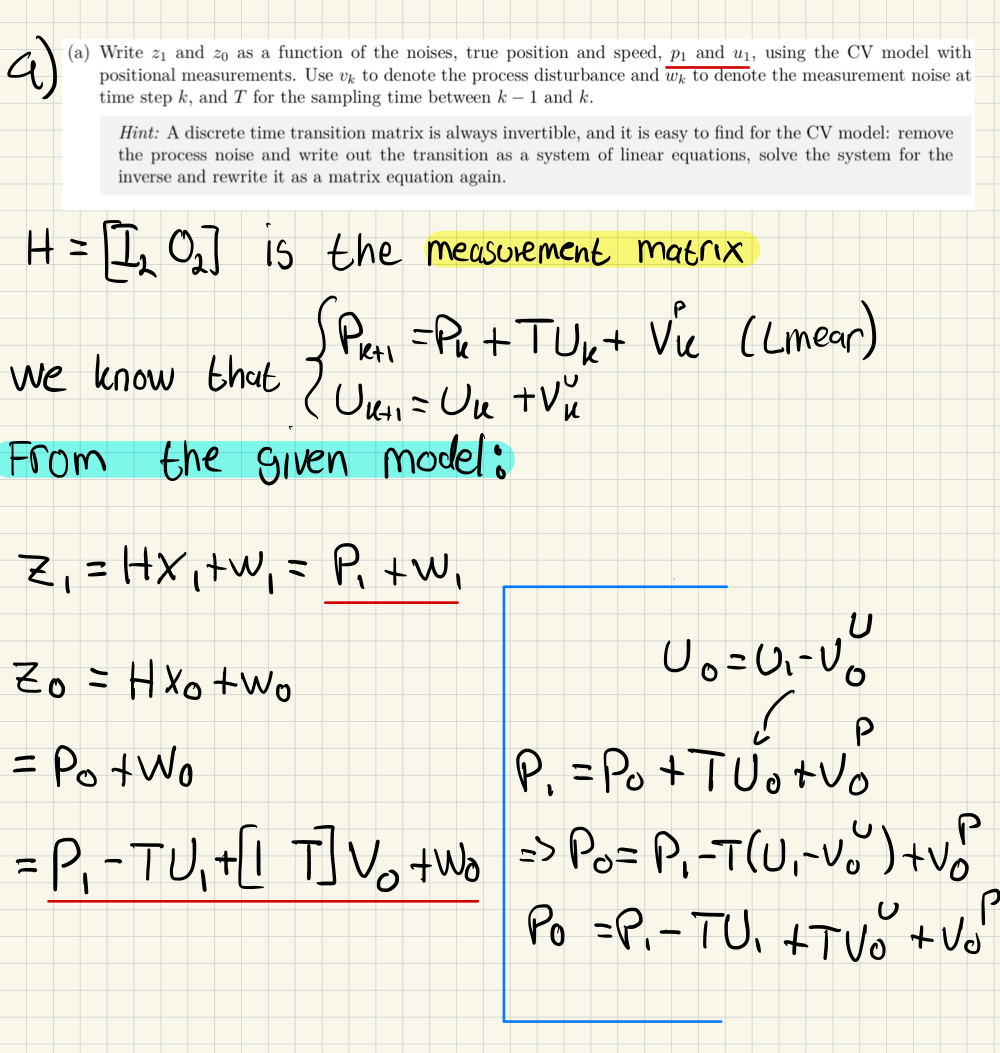 a) (a) Write z₁ and z₀ as a function of the noises, true position and speed, p₁ and u₁, using the CV model with
positional measurements. Use vₖ to denote the process disturbance and wₖ to denote the measurement noise at
time step k, and T for the sampling time between k − 1 and k.
Hint: A discrete time transition matrix is always invertible, and it is easy to find for the CV model: remove
the process noise and write out the transition as a system of linear equations, solve the system for the
inverse and rewrite it as a matrix equation again.
H = [I₂ O₂] is the measurement matrix
we know that { Pₖ₊₁ = Pₖ + TUₖ + Vₖᵖ (Linear)
Uₖ₊₁ = Uₖ + Vₖᵁ
From the given model:
Z₁ = HX₁ + W₁ = P₁ + W₁
Z₀ = HX₀ + W₀
= P₀ + W₀
= P₁ - TU₁ + [1 T] V₀ + W₀
U₀ = U₁ - V₀ᵁ
P₁ = P₀ + TU₀ + V₀ᴾ
=> P₀ = P₁ - T(U₁ - V₀ᵁ) + V₀ᴾ
P₀ = P₁ - TU₁ + TV₀ᵁ + V₀ᴾ